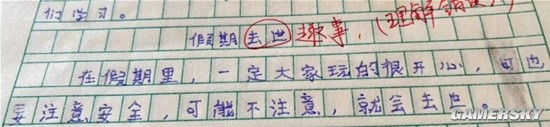 们学习。
假期去世趣事，(理解错误
在假期里，一定大家玩的很开心，可也
要注意安全，可能不注意，就会去世。
GAMERSKY